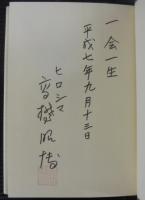 一会一生
平成七年九月十三日
ヒロシマ
高橋昭博